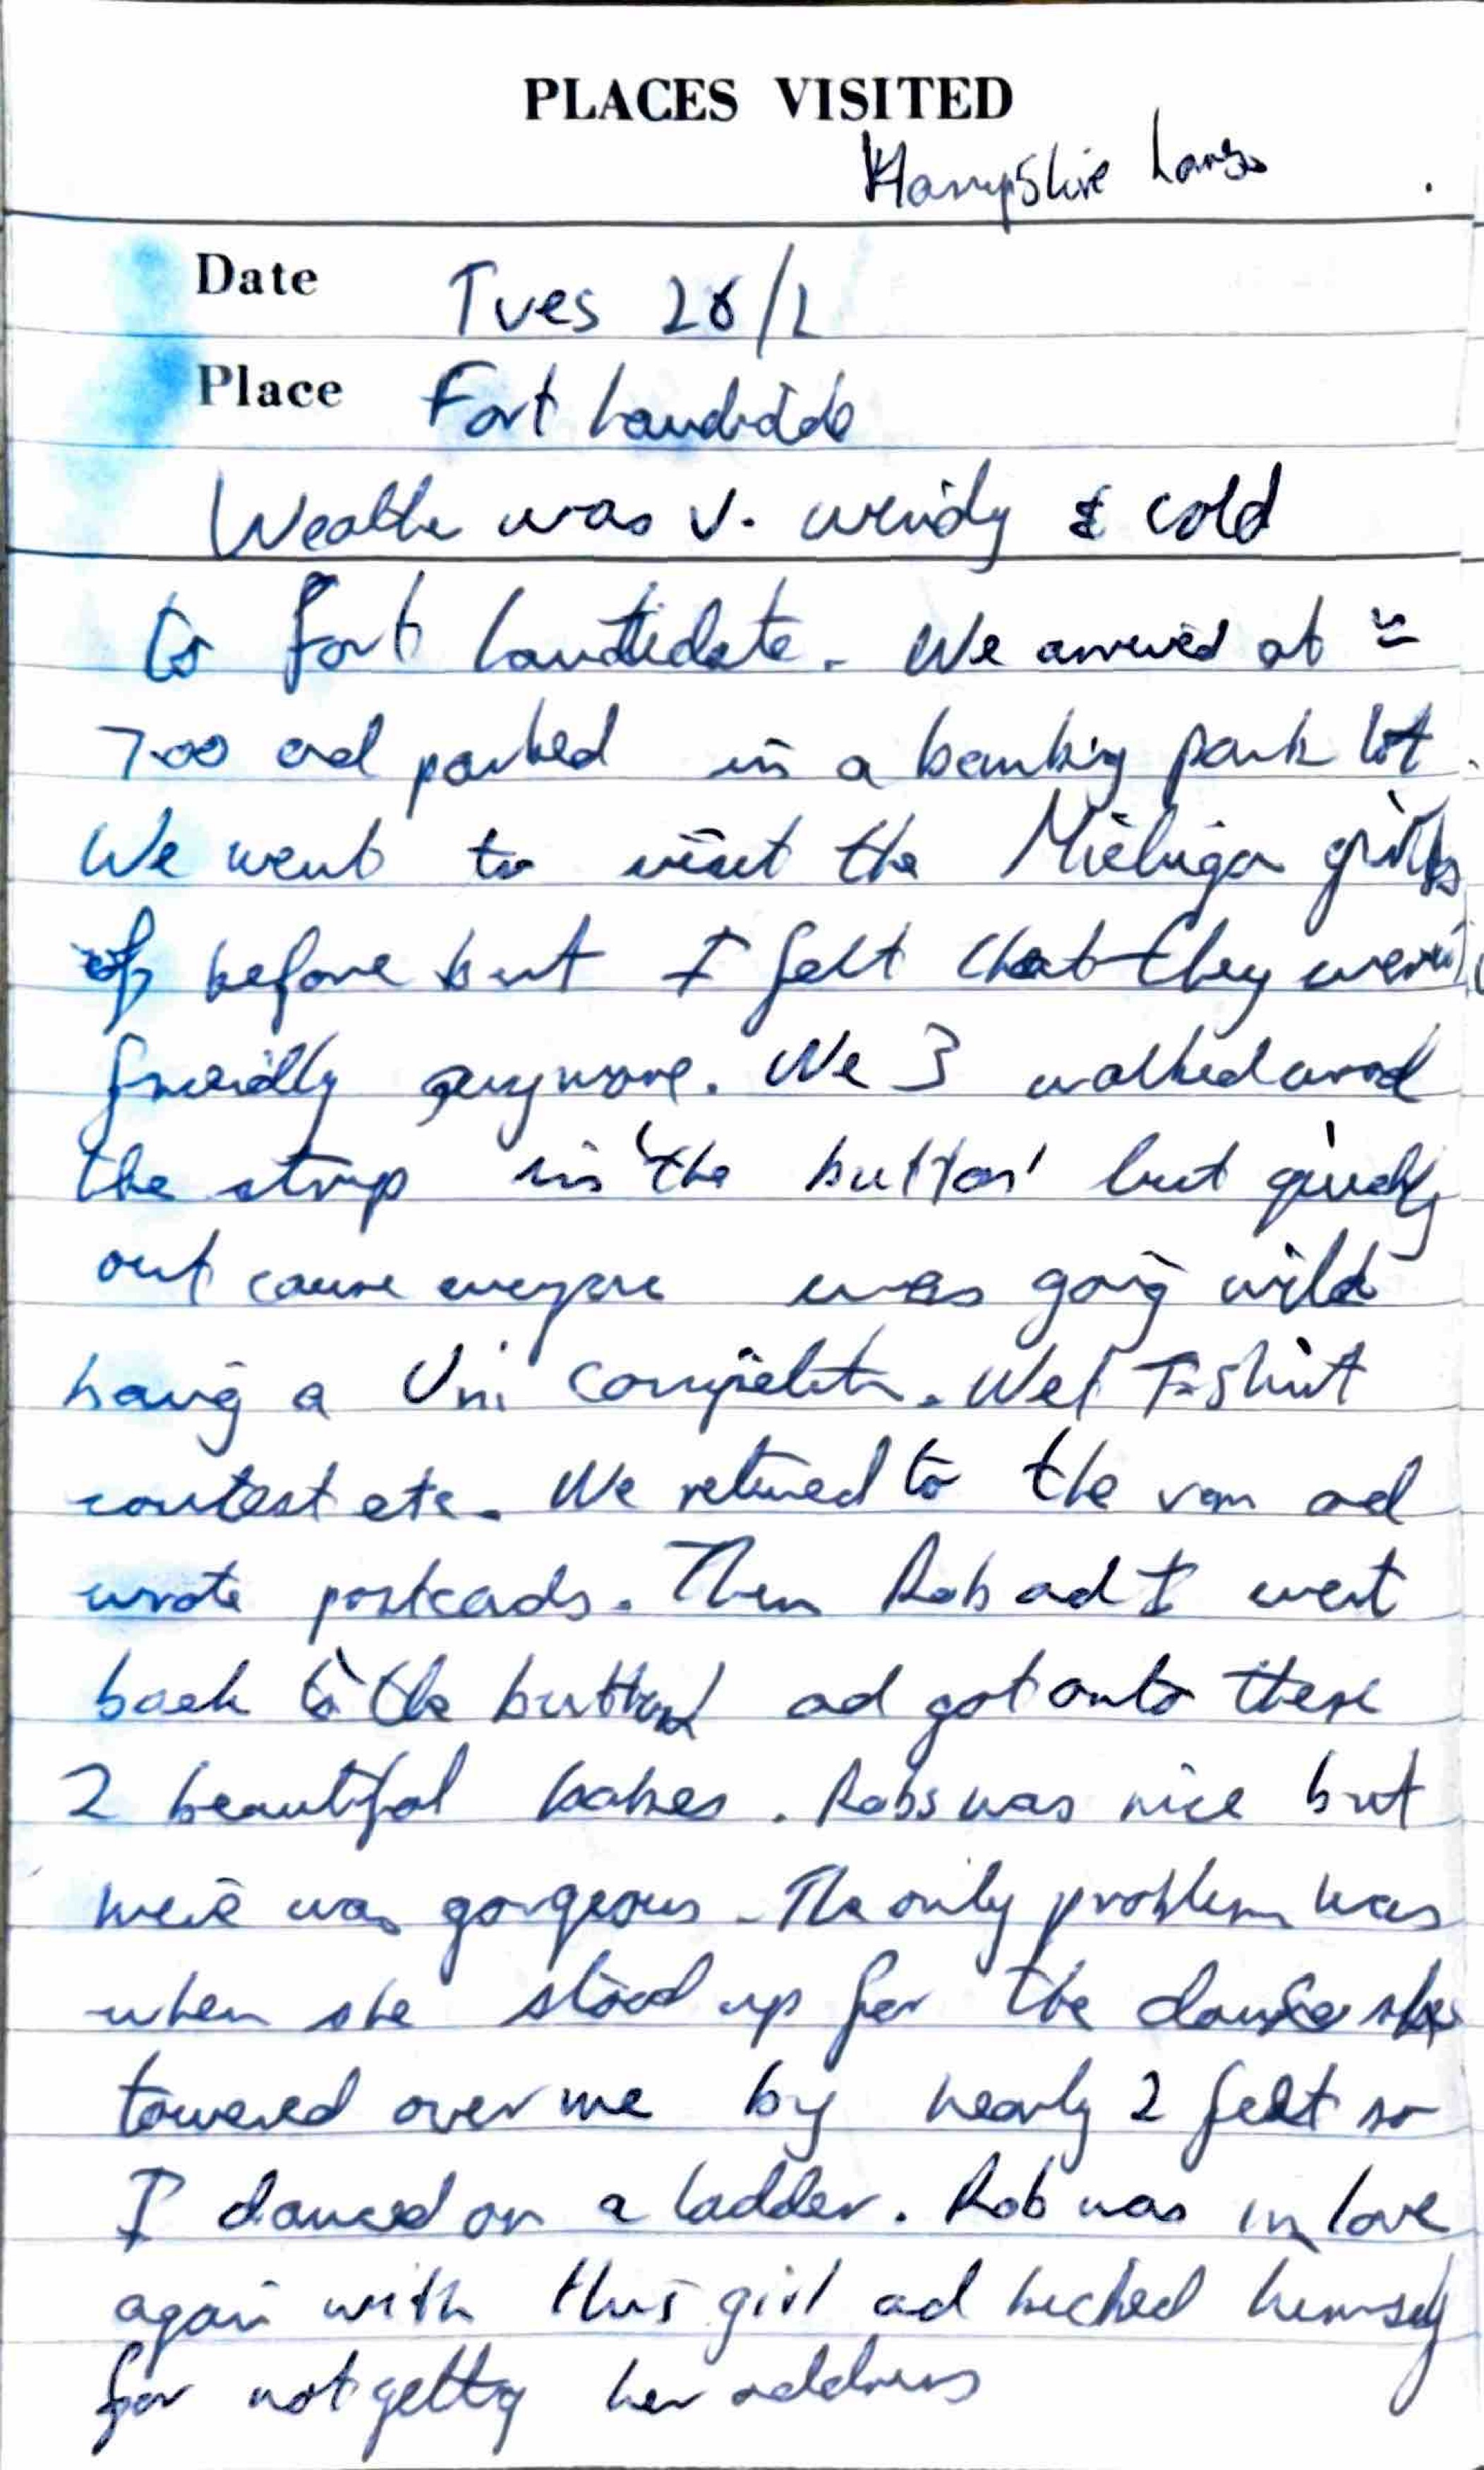 PLACES VISITED
Hampshire
Date Tues 28/2
Place Fort Laudidale
Weathe was v. windy & cold
to Fort Lauttidate. We arrived at ≃
7.00 ad parked in a banking park lot.
We went to visit the Michigan girls
of before but I felt that they weren't
friendly anymore. We 3 walked arod
the strip in 'the button' but quickly
out cause everyone was going wild
having a Uni competiton. Wet T-Shirt
contest etc. We retured to the van ad
wrote postcads. Then Rob ad I went
back to the button ad got onto these
2 beautiful babes. Robs was nice but
mine was gorgeous. The only problem was
when she stood up for the dance she
towered over me by nearly 2 feet so
I danced on a ladder. Rob was in love
again with this girl ad kicked himself
for not gettig her address